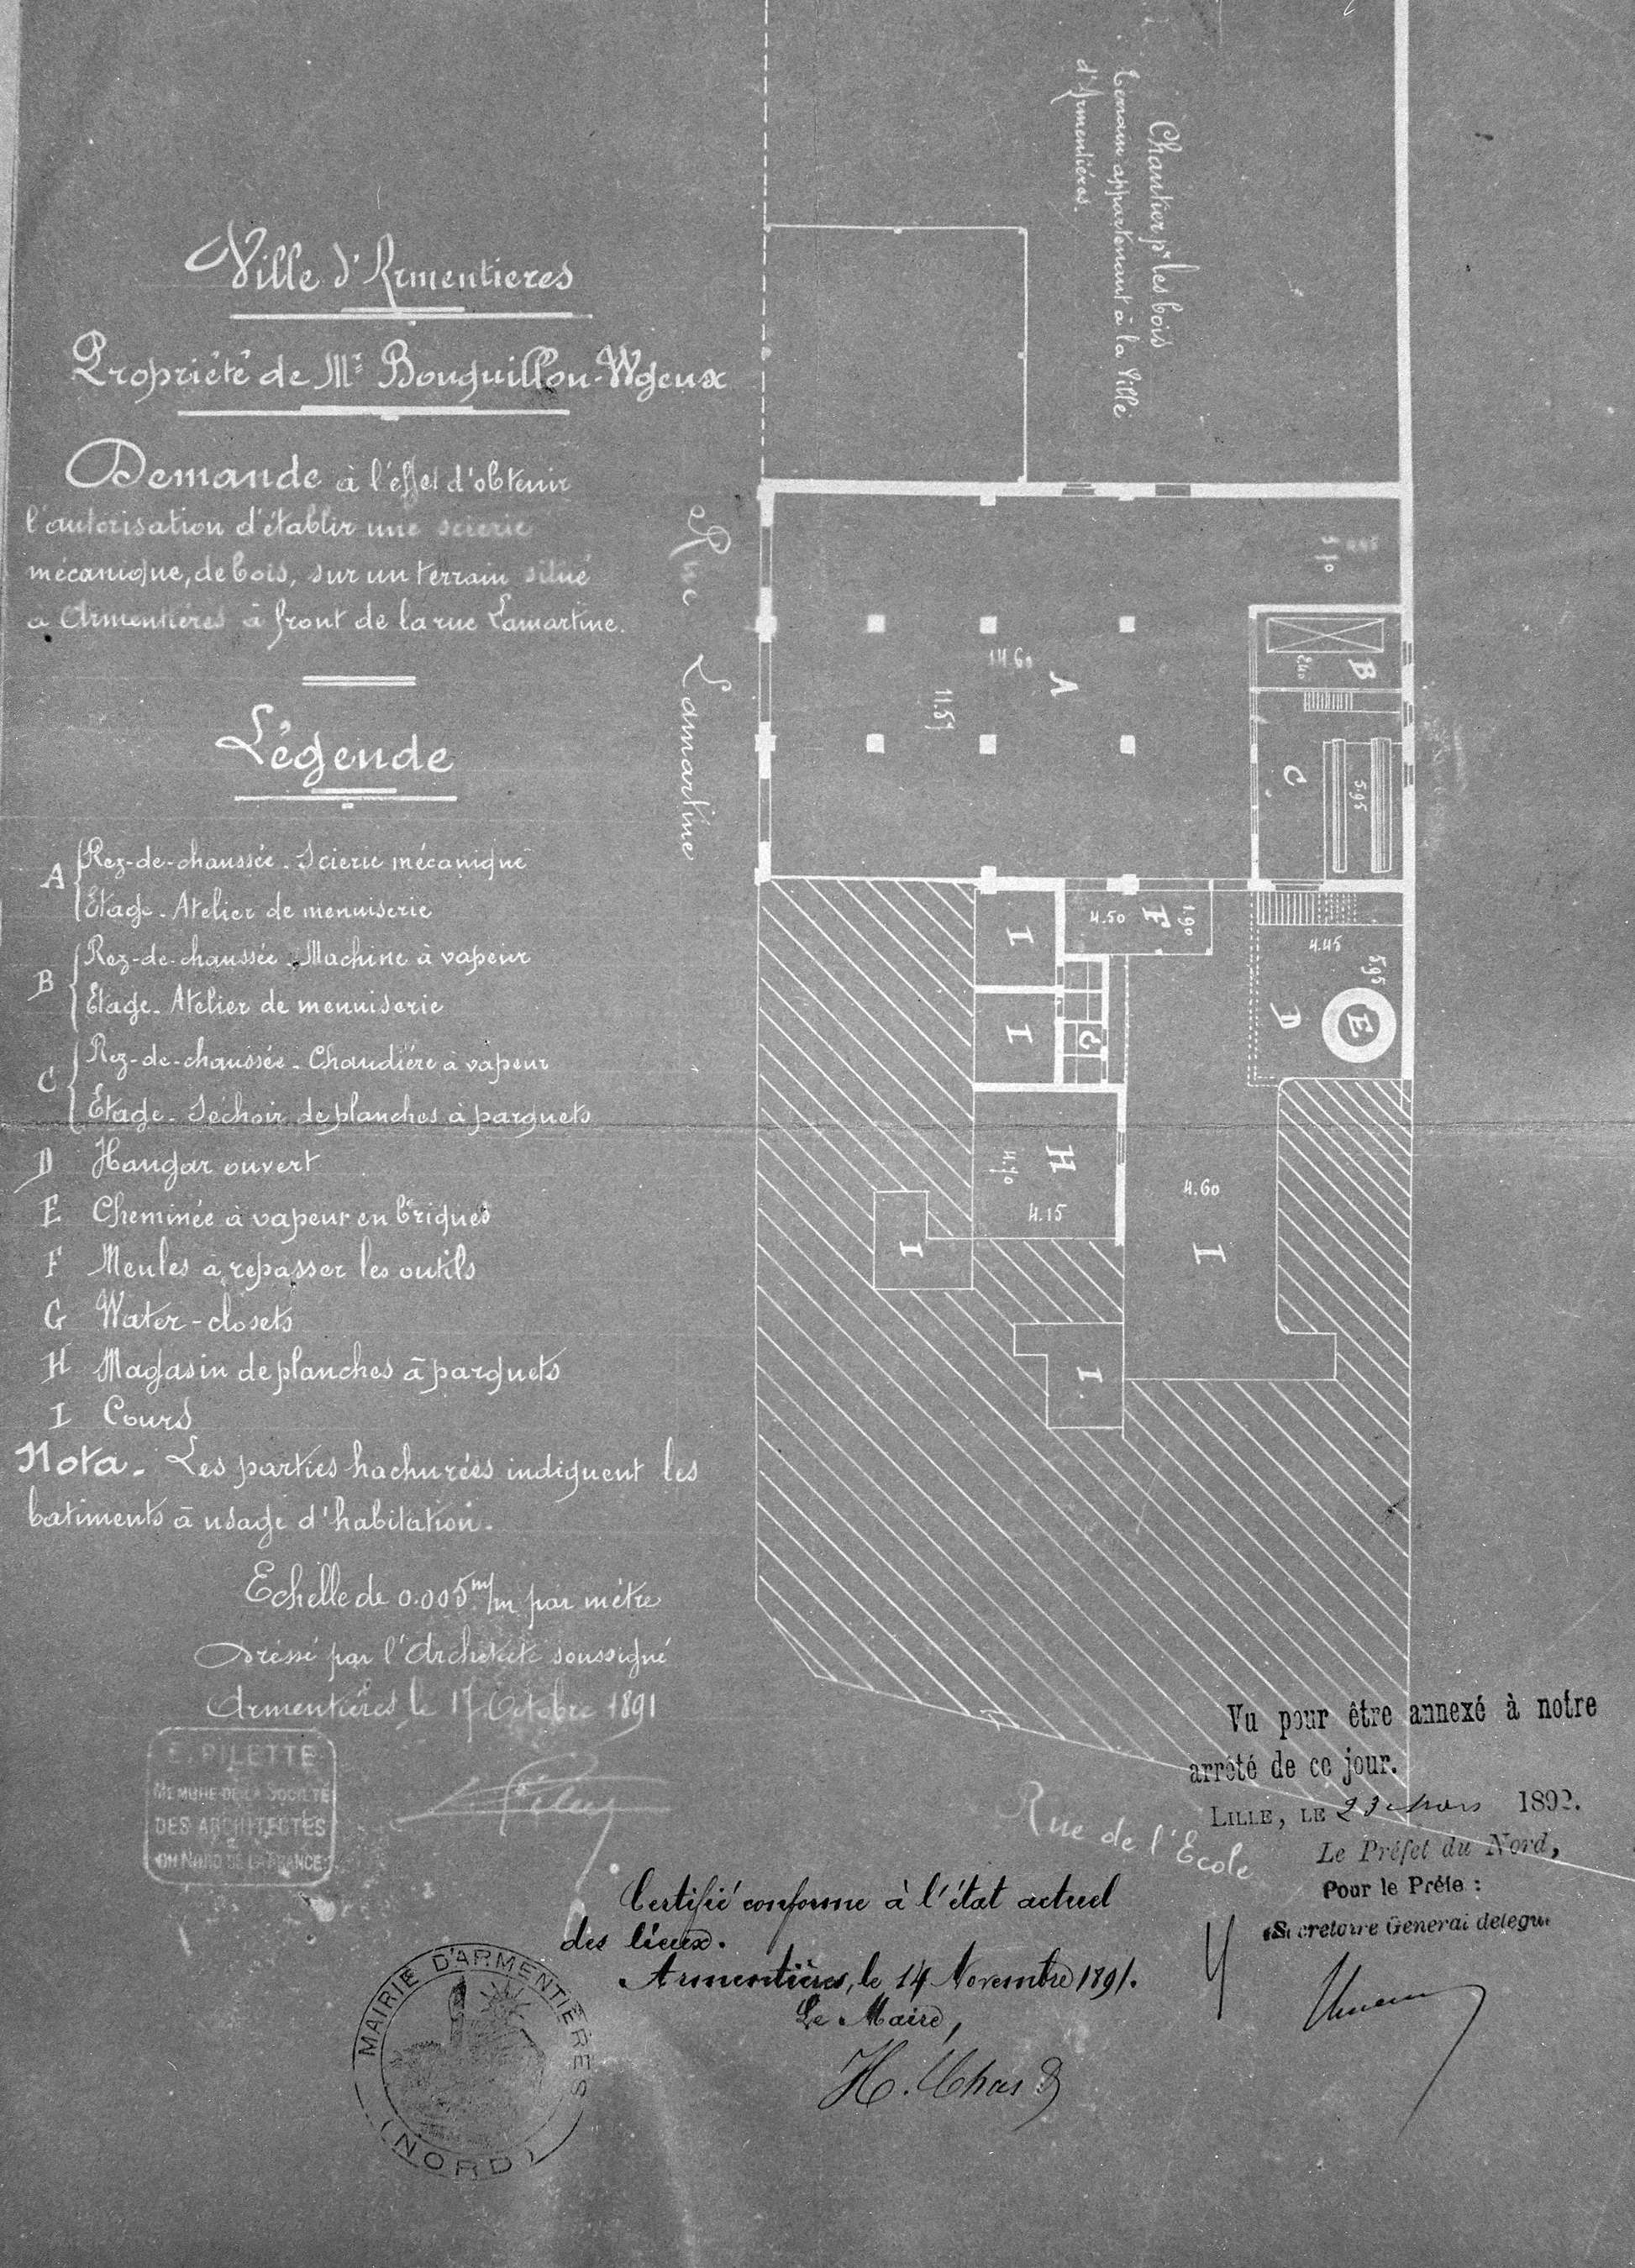 Ville d'Armentieres
Propriété de Mr Bouquillon-Wgeux
Demande à l'éffet d'obtenir
l'autorisation d'établir une scierie
mécanique, de bois, sur un terrain situé
à Armentières à front de la rue Lamartine.
Légende
A Rez-de-chaussée - Scierie mécanique
Etage - Atelier de menuiserie
B Rez-de-chaussée - Machine à vapeur
Etage - Atelier de menuiserie
C Rez-de-chaussée - Chaudière à vapeur
Etage - Séchoir de planches à parquets
D Hangar ouvert
E Cheminée à vapeur en briques
F Meules à repasser les outils
G Water-closets
H Magasin de planches à parquets
I Cours
Nota - Les parties hachurées indiquent les
batiments à usage d'habitation.
Echelle de 0.005 m/m par mètre
Dressé par l'Architecte soussigné
Armentières le 17 Octobre 1891
E. PILETTE
MEMBRE DE LA SOCIÉTÉ
DES ARCHITECTES
DU NORD DE LA FRANCE
Chantier pr les bois
Terrain appartenant à la Ville
d'Armentières.
Rue Lamartine
A
14.60
11.51
B
2.40
C
5.95
F
4.50
1.90
4.45
5.95
D
E
I
I
G
H
4.70
4.15
4.60
I
I
I.
Rue de l'Ecole
Vu pour être annexé à notre
arrêté de ce jour.
LILLE, LE 23 Mars 1892.
Le Préfet du Nord,
Pour le Préfe :
Secretaire General delegué
Certifié conforme à l'état actuel
des lieux.
Armentières, le 14 Novembre 1891.
Le Maire,
MAIRIE D'ARMENTIÈRES
(NORD)